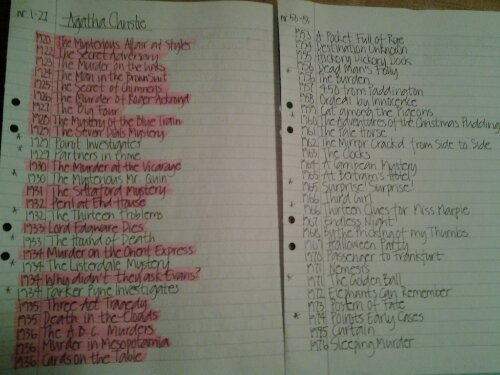 nr. 1-27 Agatha Christie
1920 The Mysterious Affair at Styles
1922 The Secret Adversary
1923 The Murder on the Links
1924 The Man in the Brown Suit
1925 The Secret of Chimneys
1926 The Murder of Roger Ackroyd
1927 The Big Four
1928 The Mystery of the Blue Train
1929 The Seven Dials Mystery
* 1929 Poirot Investigates
* 1929 Partners in crime
1930 The Murder at the Vicarage
* 1930 The Mysterious Mr. Quin
1931 The Sittaford Mystery
1932 Peril at End House
* 1932 The Thirteen Problems
1933 Lord Edgware Dies
* 1933 The Hound of Death
1934 Murder on the Orient Express
* 1934 The Listerdale Mystery
1934 Why didn't they ask Evans?
* 1934 Parker Pyne Investigates
1935 Three Act Tragedy
1935 Death in the Clouds
1936 The A.B.C. Murders
1936 Murder in Mesopotamia
1936 Cards on the Table
nr
1953 A Pocket Full of Rye
1954 Destination Unknown
1955 Hickory Dickory Dock
1956 Dead Man's Folly
1956 The Burden
1957 4.50 from Paddington
1958 Ordeal by Innocence
1959 Cat among the Pigeons
* 1960 The Adventures of the Christmas Pudding
1961 The Pale Horse
1962 The Mirror Crack'd from Side to Side
1963 The Clocks
1964 A Caribbean Mystery
1965 At Bertram's Hotel
* 1965 Surprise! Surprise!
1966 Third Girl
* 1966 Thirteen Clues for Miss Marple
1967 Endless Night
1968 By the Pricking of my Thumbs
1969 Halloween Party
1970 Passenger to Frankfurt
1971 Nemesis
* 1971 The Golden Ball
1972 Elephants Can Remember
1973 Postern of Fate
* 1974 Poirots Early Cases
1975 Curtain
1976 Sleeping Murder